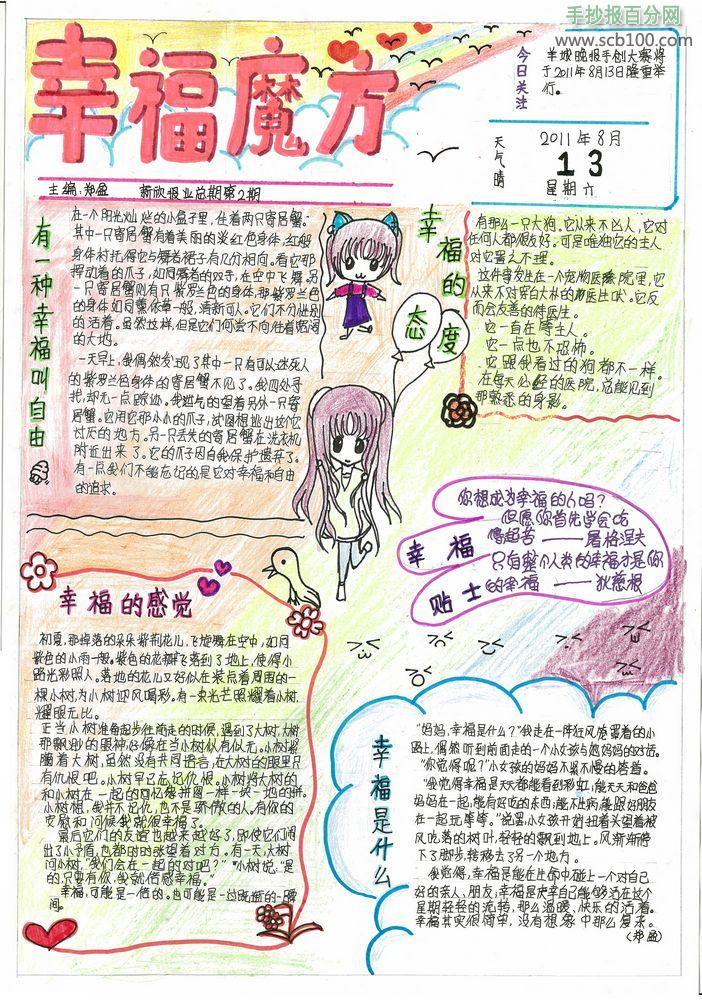 手抄报百分网
www.scb100.com
幸福魔方
今日关注
羊城晚报手创大赛将
于2011年8月13日隆重举
行。
天气晴
2011年8月
13
星期六
主编:郑盈 新欣报业总期第2期
有一种幸福叫自由
在一个阳光灿烂的小盒子里,住着两只寄居蟹。
其中一只寄居蟹有着美丽的
身体
摆动着的爪子,如同舞者的双手,在空中飞舞。另
一只寄居蟹则有只紫罗兰色的身体,那紫罗兰色
的身体如同薰衣草一般,清新可人。它们不分昼夜
的活着。虽然这样,但是它们何尝不向往着
的大地。
一天早上,我偶然发现了其中一只有可以迷死人
的紫罗兰色身体的寄居蟹不见了。我四处寻
找,却无一点踪迹。我
的望着另外一只寄居
蟹。它用它那小小的爪子,试图想逃出这个它
讨厌的地方。另一只丢失的寄居蟹在洗衣机
附近出来了。它的爪子因自我保护遗弃了。
有一点我们不能忘记的是它对幸福和自由
的追求。
幸福的态度
有那么一只大狗。它从来不凶人,它对
任何人都很友好。可是唯独它的主人
对它置之不理。
这件事发生在一个宠物医院里,它
从来不对穿白大褂的医生吠。它反
而会友善的待医生。
它一直在等主人。
它一点也不恐怖。
它跟我看过的狗都不一样。
在每天必经的医院,总能见到
那熟悉的身影。
幸福贴士
你想成为幸福的人吗?
但愿你首先学会吃
得起苦 ——屠格涅夫
只有整个人类的幸福才是你
的幸福 ——狄慈根
幸福的感觉
初夏,那掉落的朵朵紫荆花儿,飞旋舞在空中,如同
紫色的小雨一般。紫色的花瓣飞落到了地上,使得小
路光彩照人。落地的花儿又好似在装点着周围的一
棵小树,为小树迎风喝彩。有一束光芒照耀着小树,
耀眼无比。
正当小树准备起步往前走的时候,遇到了大树,大树
那飘渺的眼神好像在当小树似有似无。小树擦
着大树,虽然没有共同语言,在大树的眼里只
有仇恨吧。小树早已忘记仇恨。小树将大树的
和小树在一起的回忆想拼图一样一块一块地拼。
小树想,我并不记仇,也不是骄傲的人。有你的
安慰和问候我就很幸福了。
最后它们的友谊也越来越好了,即使它们闹
出了小矛盾,也都时时望着对方。有一天,大树
问小树,“我们会在一起的对吧?”小树说,“是
的,只要有你,我就倍感幸福。”
幸福,可能是一倍的。也可能是一过
的一瞬
间。
幸福是什么
“妈妈,幸福是什么?”我走在一阵狂风席卷着的小
路上,偶然听到前面走的一个小女孩与她妈妈的对话。
“你觉得呢?”小女孩的妈妈不紧不慢的答着。
“我觉得幸福是天天都能看到彩虹,能天天和爸爸
妈妈在一起,能有好吃的东西,能不生病,能跟好朋友
在一起玩等等。”说罢,小女孩开始扭着头望着被
风吹落的树叶,轻轻的飘到地上。风渐渐停
下了脚步,转移去了另一个地方。
我觉得,幸福是能在生命中碰上一个对自己
好的亲人,朋友;幸福是庆幸自己能够活在这个
星期轻轻的流转,那么温暖、快乐的活着。
幸福其实很简单,没有想象中那么复杂。
(郑盈)